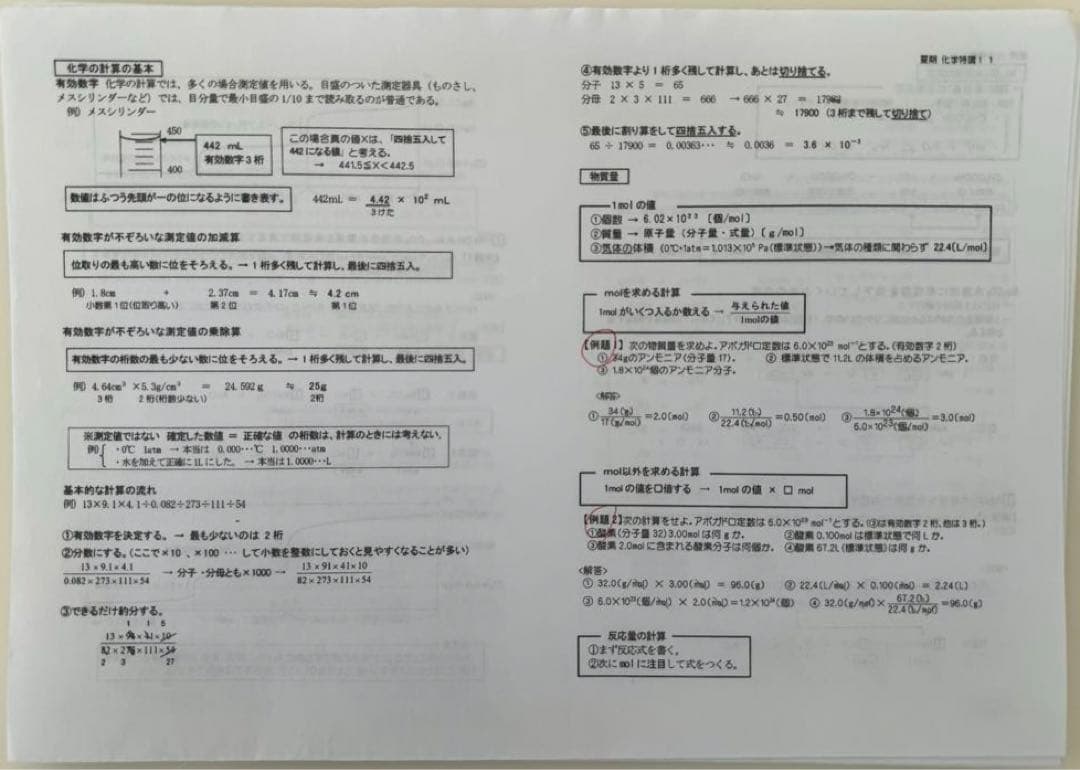 化学の計算の基本
有効数字 化学の計算では、多くの場合測定値を用いる。目盛のついた測定器具（ものさし、
メスシリンダーなど）では、目分量で最小目盛の1/10まで読み取るのが普通である。
例）メスシリンダー
450
400
442 mL
有効数字3桁
この場合真の値Xは、「四捨五入して
442になる値」と考える。
→ 441.5≦X<442.5
数値はふつう先頭が一の位になるように書き表す。
442mL = 4.42 × 10² mL
3けた
有効数字が不ぞろいな測定値の加減算
位取りの最も高い数に位をそろえる。→ 1桁多く残して計算し、最後に四捨五入。
例）1.8cm + 2.37cm = 4.17cm ≒ 4.2 cm
小数第1位(位取り高い) 第2位 第1位
有効数字が不ぞろいな測定値の乗除算
有効数字の桁数の最も少ない数に位をそろえる。→ 1桁多く残して計算し、最後に四捨五入。
例）4.64cm³ ×5.3g/cm³ = 24.592 g ≒ 25g
3桁 2桁(桁数少ない) 2桁
※測定値ではない 確定した数値 = 正確な値 の桁数は、計算のときには考えない。
例） ・0℃ 1atm → 本当は 0.000…℃ 1.0000…atm
・水を加えて正確に1Lにした。 → 本当は1.0000…L
基本的な計算の流れ
例）13×9.1×4.1÷0.082÷273÷111÷54
①有効数字を決定する。→ 最も少ないのは 2桁
②分数にする。（ここで×10 、×100 … して小数を整数にしておくと見やすくなることが多い）
13×9.1×4.1
0.082×273×111×54
→ 分子・分母とも×1000 →
13×91×41×10
82×273×111×54
③できるだけ約分する。
1 1 5
13×91×41×10
82×273×111×54
2 3 27
夏期 化学特講Ⅰ 1
④有効数字より1桁多く残して計算し、あとは切り捨てる。
分子 13 × 5 = 65
分母 2 × 3 × 111 = 666 → 666 × 27 = 17982
≒ 17900 (3桁まで残して切り捨て)
⑤最後に割り算をして四捨五入する。
65 ÷ 17900 = 0.00363… ≒ 0.0036 = 3.6 × 10⁻³
物質量
1molの値
①個数 → 6.02×10²³ [個/mol]
②質量 → 原子量（分子量・式量）[g/mol]
③気体の体積 (0℃・1atm=1.013×10⁵ Pa(標準状態))→気体の種類に関わらず 22.4[L/mol]
molを求める計算
1molがいくつ入るか数える → 与えられた値
1molの値
【例題1】次の物質量を求めよ。アボガドロ定数は6.0×10²³ mol⁻¹とする。(有効数字2桁)
① 34gのアンモニア(分子量17)。 ② 標準状態で11.2Lの体積を占めるアンモニア。
③ 1.8×10²⁴個のアンモニア分子。
<解答>
① 34(g)/17(g/mol) =2.0(mol) ② 11.2(L)/22.4(L/mol) =0.50(mol) ③ 1.8×10²⁴(個)/6.0×10²³(個/mol) =3.0(mol)
mol以外を求める計算
1molの値を□倍する → 1molの値 × □ mol
【例題2】次の計算をせよ。アボガドロ定数は6.0×10²³ mol⁻¹とする。(③は有効数字2桁、他は3桁。)
①酸素(分子量32)3.00molは何gか。 ②酸素0.100molは標準状態で何Lか。
③酸素2.0molに含まれる酸素分子は何個か。 ④酸素67.2L(標準状態)は何gか。
<解答>
① 32.0(g/mol) × 3.00(mol) = 96.0(g) ② 22.4(L/mol) × 0.100(mol) = 2.24(L)
③ 6.0×10²³(個/mol) × 2.0(mol)=1.2×10²⁴(個) ④ 32.0(g/mol)× 67.2(L)/22.4(L/mol) =96.0(g)
反応量の計算
①まず反応式を書く。
②次にmolに注目して式をつくる。